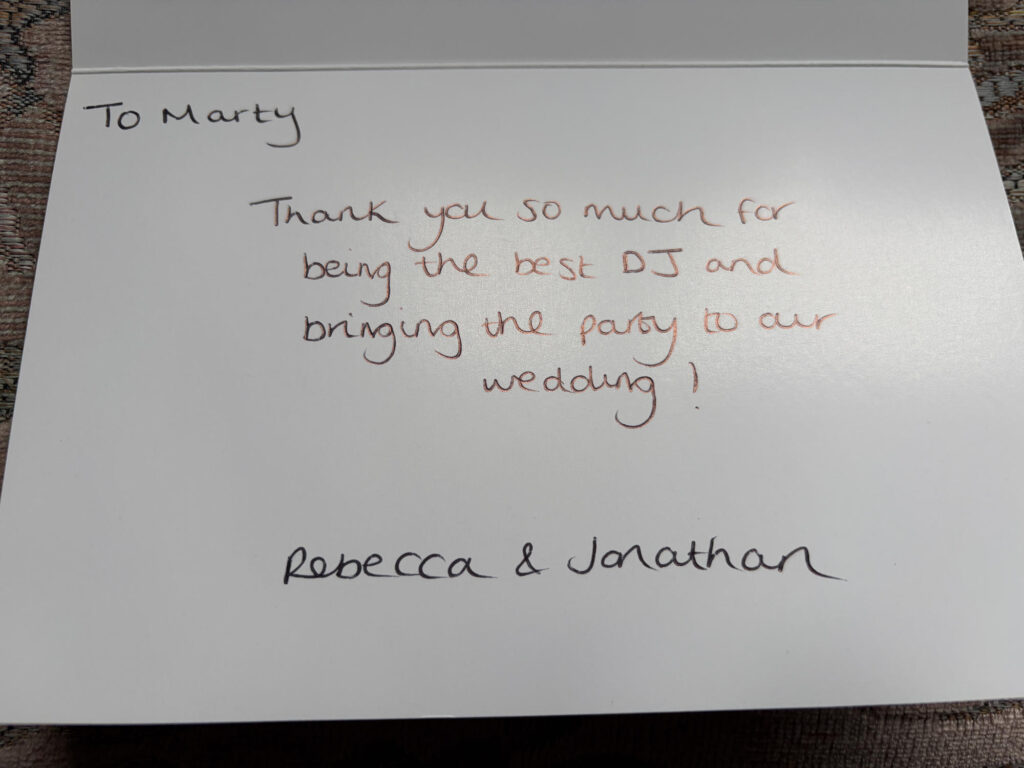 To Marty
Thank you so much for
being the best DJ and
bringing the party to our
wedding!
Rebecca & Jonathan